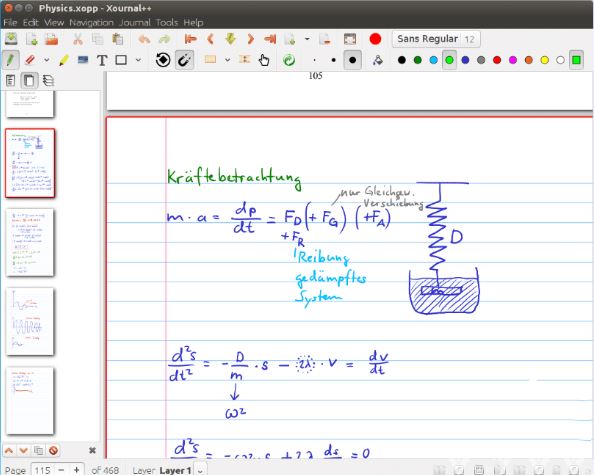 Physics.xopp - Xournal++
File Edit View Navigation Journal Tools Help
Sans Regular 12
105
Kräftebetrachtung
nur Gleichgew.
Verschiebung
m · a = dp/dt = F_D (+ F_G) (+F_A)
+ F_R
Reibung
gedämpftes
System
D
d²s/dt² = - D/m · s - 2λ · v = dv/dt
ω²
d²s = -ω² · s + 2λ ds = 0
Page 115 - + of 468 Layer Layer 1